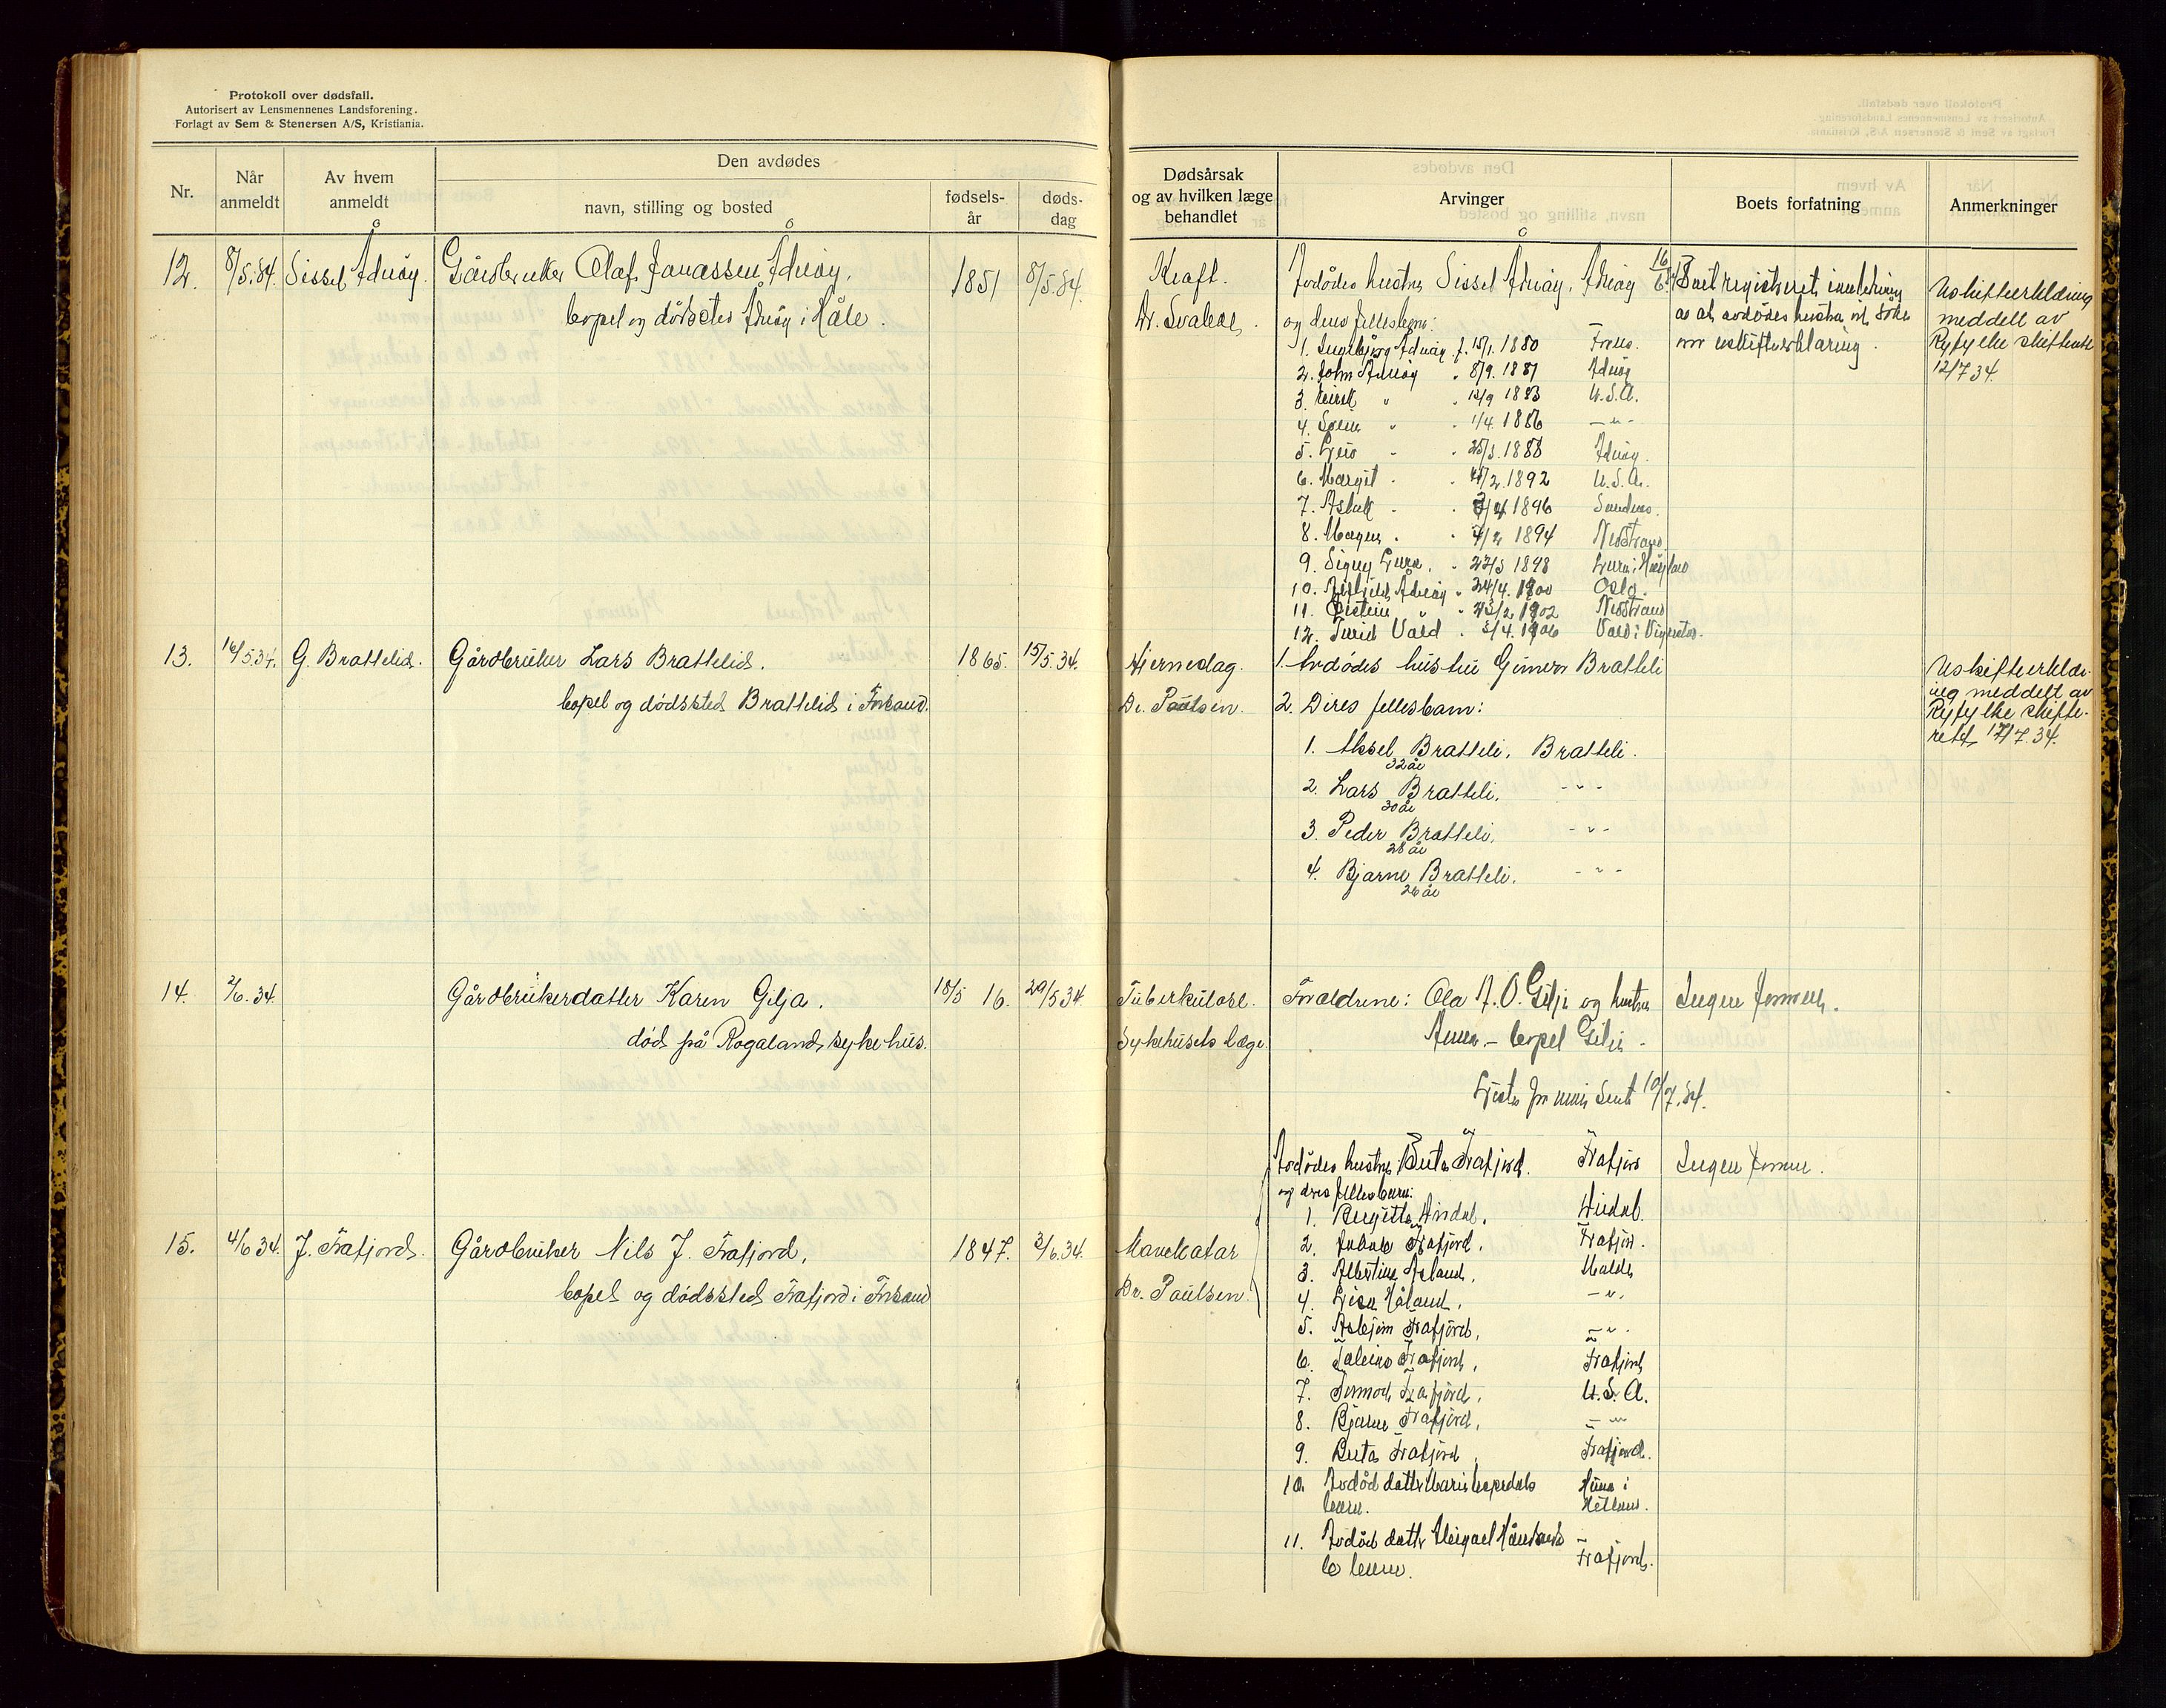 Protokoll over dødsfall.
Autorisert av Lensmennenes Landsforening.
Forlagt av Sem & Stenersen A/S, Kristiania.
Nr.
Når anmeldt
Av hvem anmeldt
Den avdødes
navn, stilling og bosted
fødsels-år
døds-dag
Dødsårsak og av hvilken læge behandlet
Arvinger
Boets forfatning
Anmerkninger
12. 8/5.34. Sissel Ådnøy. Gårdbruker Olaf Jonassen Ådnøy, 1851 8/5.34.
bopel og dødssted Ådnøy i Håle.
Kreft.
Dr. Svalede.
Avdødes hustru Sissel Ådnøy, Ådnøy 16/6
og deres fellesbarn:
1. Ingebjørg Ådnøy f. 15/1. 1880
2. John Ådnøy " 8/9. 1881 Ådnøy
3. Eirik " " 12/9 1883 U.S.A.
4. Svein " " 1/4. 1886 - " -
5. 25/3. 1888 Ådnøy.
6. Margit " " 1892 U.S.A.
7. Aslak " " 1896 Sandnes.
8. Magnus " " 4/2 1894 Nedstrand
9. Signy Lura. " 22/3 1898 Lura i Høyland
10. Ådnøy " 24/4. 1900 Oslo.
11. Øistein " " 23/2 1902 Nedstrand
12. Turid Vald " 5/4. 1906
Boet registreret i anledning
av at avdødes hustru vil søke
om uskifteerklæring.
Uskifteerklæring
meddelt av
Ryfylke skifterett
12/7 34.
13. 16/5.34. G. Brattelid. Gårdbruker Lars Brattelid. 1865. 15/5.34.
bopel og dødssted Brattelid i Forsand.
Hjerneslag.
Dr. Paulsen.
1. Avdødes hustru Gunvor Bratteli
2. Deres fellesbarn:
1. Aksel Bratteli, Bratteli.
32 år
2. Lars Bratteli, - " -
30 år
3. Peder Bratteli, - " -
28 år
4. Bjarne Bratteli, - " -
26 år
Uskifteerklær-
ing meddelt av
Ryfylke skifte-
rett 17/7.34.
14. 2/6.34. Gårdbrukerdatter Karen Gilja. 18/5 16. 29/5 34.
død på Rogaland sykehus.
Tuberkulose.
Sykehusets læge.
Foreldrene: Ola A. O. Gilje og hustru
Anna - bopel Gilje -
Liste for min sendt 10/7.34.
Ingen formue.
15. 4/6 34. J. Frafjord. Gårdbruker Nils J. Frafjord, 1847. 3/6.34.
bopel og dødssted Frafjord i Forsand
Mavekatar
Dr. Paulsen.
Avdødes hustru Berta Frafjord. Frafjord
og deres fellesbarn:
1. Birgitte Vindal.
2. Frafjord. Frafjord.
3. Albertine Aaland,
4. Lisa Håland, - " -
5. Asbjørn Frafjord, - " -
6. Frafjord, Frafjord
7. Tormod Frafjord, U.S.A.
8. Bjarne Frafjord, - " -
9. Berta Frafjord, Frafjord.
10. Avdød datter Marie Espedals
barn.
i
Hetland.
11. Avdød datter Abigael
6 barn. Frafjord.
Ingen formue.